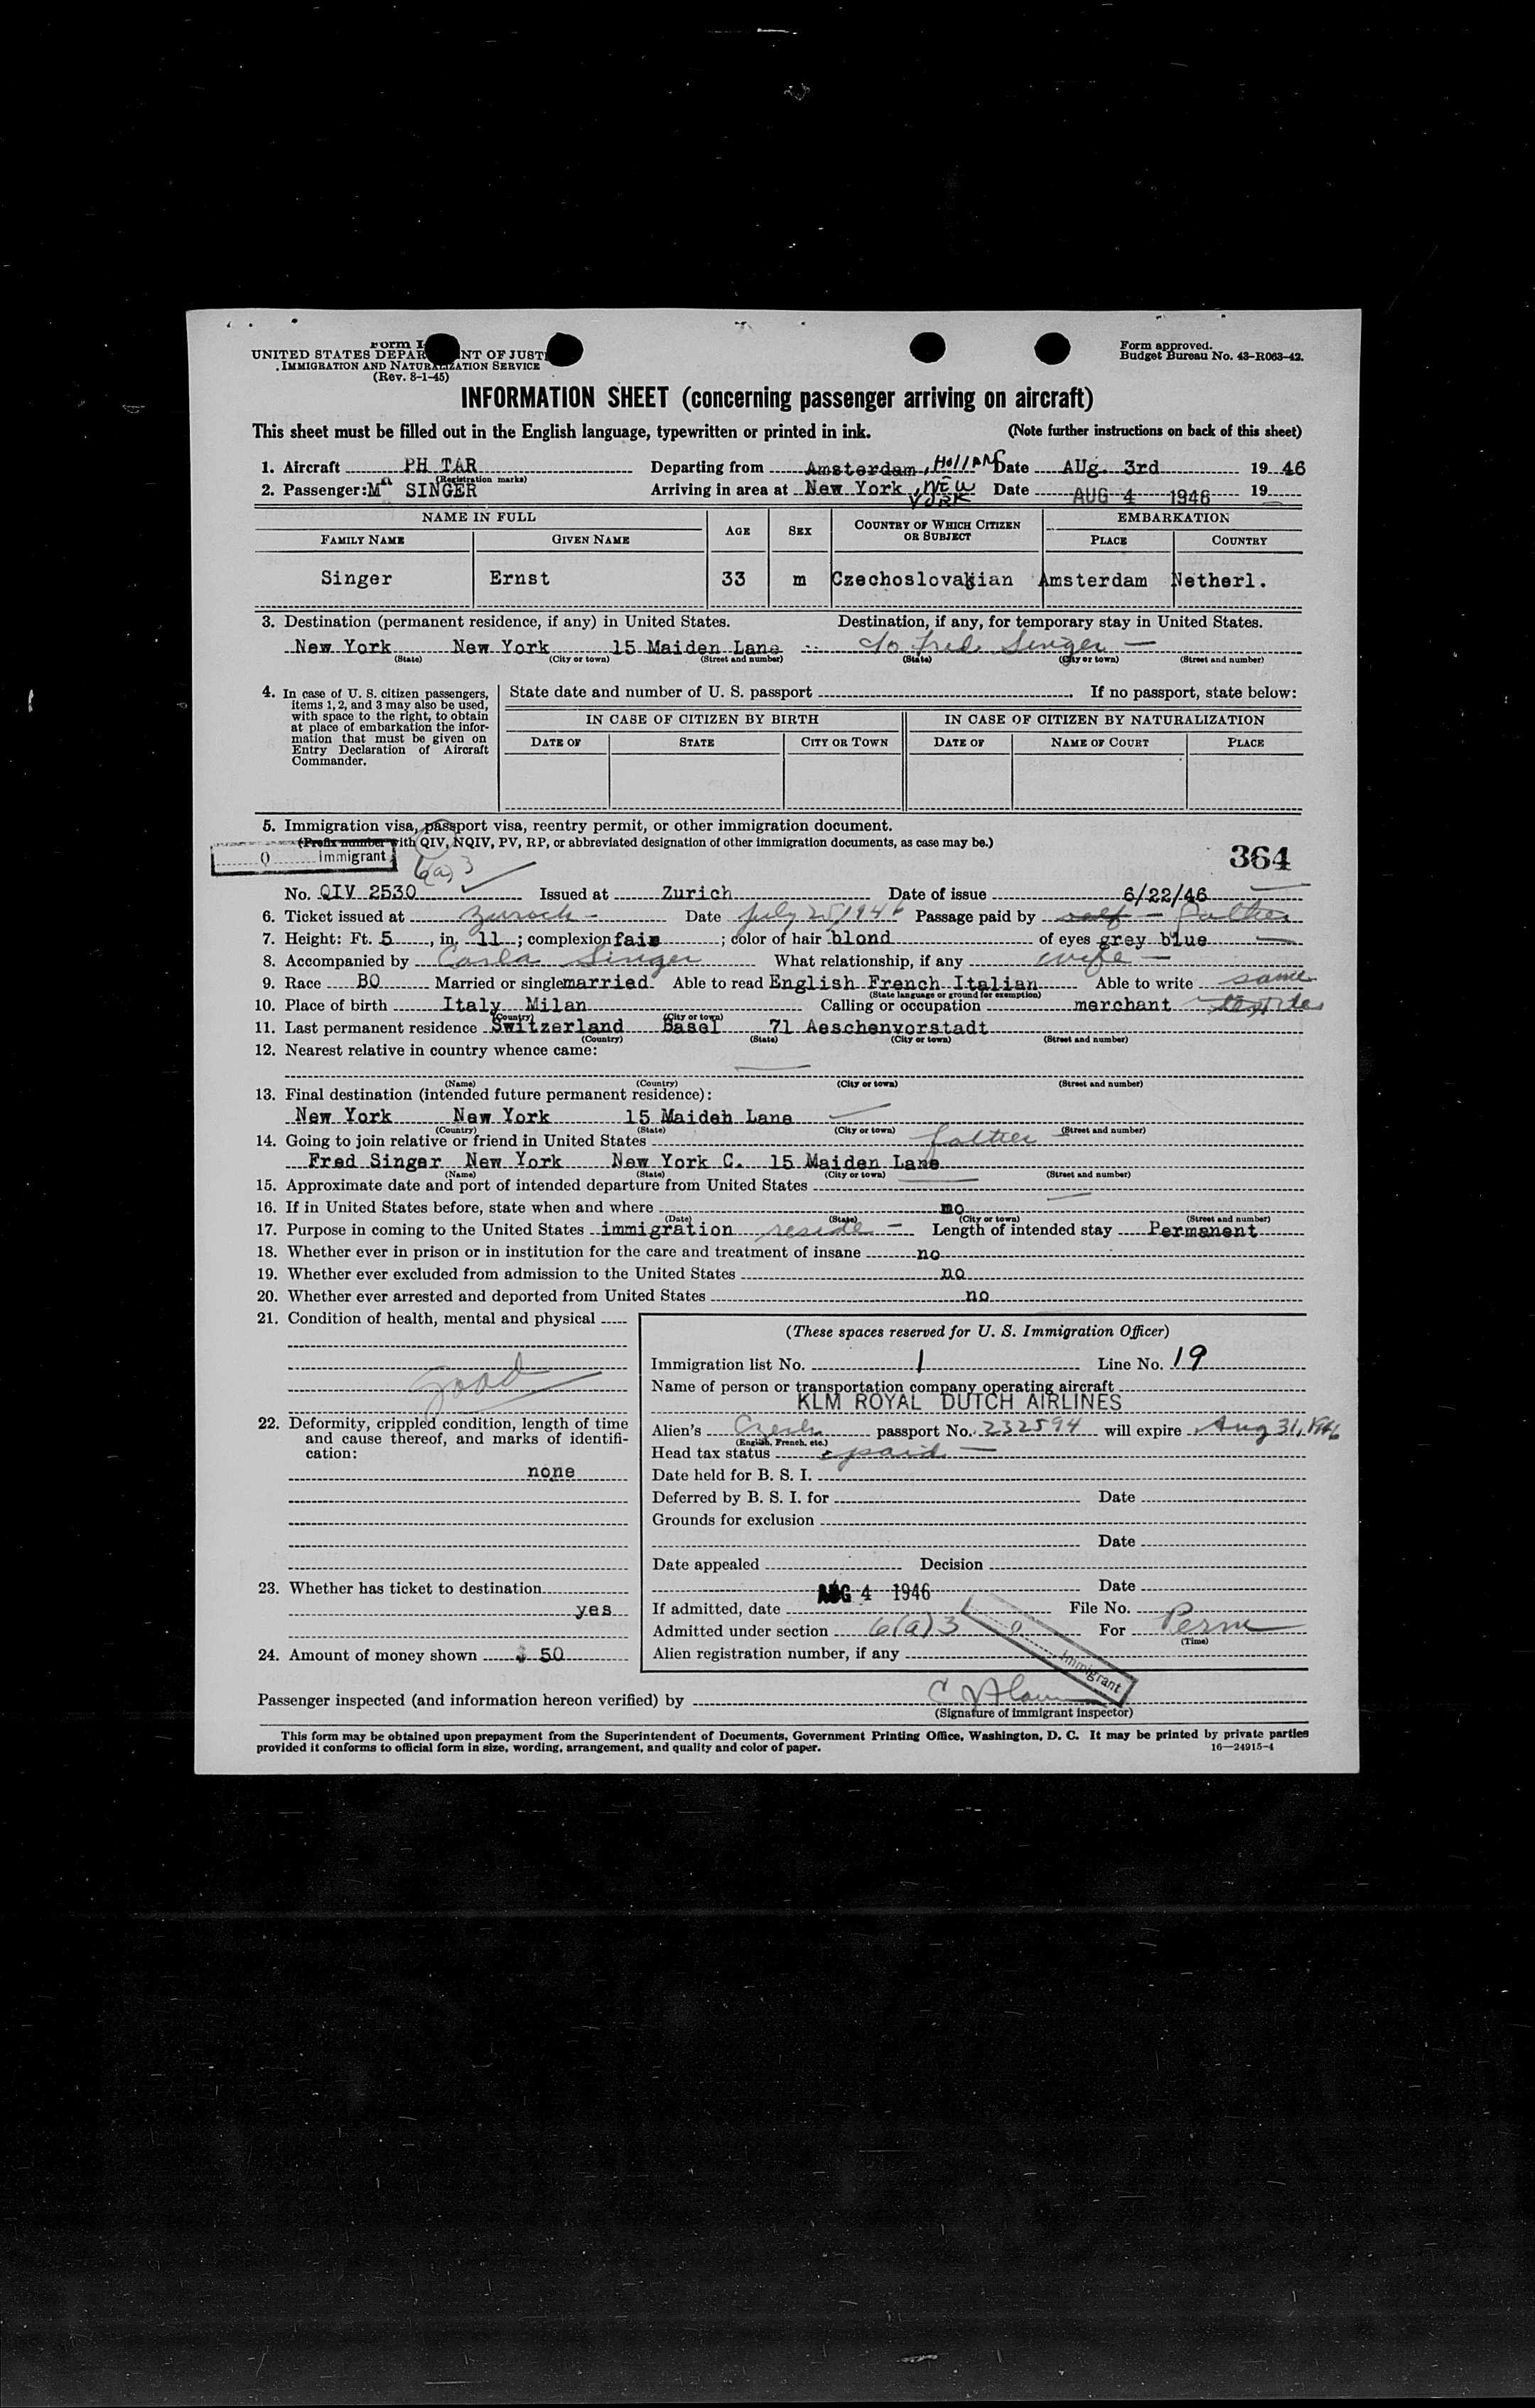 Form I-
UNITED STATES DEPAR NT OF JUST
IMMIGRATION AND NATURALIZATION SERVICE
(Rev. 8-1-45)
Form approved.
Budget Bureau No. 43-R063-42.
INFORMATION SHEET (concerning passenger arriving on aircraft)
This sheet must be filled out in the English language, typewritten or printed in ink. (Note further instructions on back of this sheet)
1. Aircraft PH TAR Departing from Amsterdam, HOLLAND Date AUg. 3rd 19 46
(Registration marks)
2. Passenger: Mr SINGER Arriving in area at New York, NEW YORK Date AUG 4 1946 19
NAME IN FULL AGE SEX COUNTRY OF WHICH CITIZEN OR SUBJECT EMBARKATION
FAMILY NAME GIVEN NAME PLACE COUNTRY
Singer Ernst 33 m Czechoslovakian Amsterdam Netherl.
3. Destination (permanent residence, if any) in United States. Destination, if any, for temporary stay in United States.
New York New York 15 Maiden Lane c/o Fred Singer
(State) (City or town) (Street and number) (State) (City or town) (Street and number)
4. In case of U. S. citizen passengers, items 1, 2, and 3 may also be used, with space to the right, to obtain at place of embarkation the information that must be given on Entry Declaration of Aircraft Commander.
State date and number of U. S. passport . If no passport, state below:
IN CASE OF CITIZEN BY BIRTH IN CASE OF CITIZEN BY NATURALIZATION
DATE OF STATE CITY OR TOWN DATE OF NAME OF COURT PLACE
5. Immigration visa, passport visa, reentry permit, or other immigration document.
(Prefix number with QIV, NQIV, PV, RP, or abbreviated designation of other immigration documents, as case may be.)
0 Immigrant
6(a) 3
364
No. QIV 2530 Issued at Zurich Date of issue 6/22/46
6. Ticket issued at Zurich Date July 25/1946 Passage paid by self - father
7. Height: Ft. 5, in. 11; complexion fair; color of hair blond of eyes grey blue
8. Accompanied by Carla Singer What relationship, if any wife
9. Race BO Married or single married Able to read English French Italian Able to write same
(State language or ground for exemption)
10. Place of birth Italy Milan Calling or occupation merchant textiles
(Country) (City or town)
11. Last permanent residence Switzerland Basel 71 Aeschenvorstadt
(Country) (State) (City or town) (Street and number)
12. Nearest relative in country whence came:
(Name) (Country) (City or town) (Street and number)
13. Final destination (intended future permanent residence):
New York New York 15 Maideh Lane
(Country) (State) (City or town) (Street and number)
14. Going to join relative or friend in United States father
Fred Singer New York New York C. 15 Maiden Lane
(Name) (State) (City or town) (Street and number)
15. Approximate date and port of intended departure from United States
16. If in United States before, state when and where no
(Date) (State) (City or town) (Street and number)
17. Purpose in coming to the United States immigration reside Length of intended stay Permanent
18. Whether ever in prison or in institution for the care and treatment of insane no
19. Whether ever excluded from admission to the United States no
20. Whether ever arrested and deported from United States no
21. Condition of health, mental and physical
good
22. Deformity, crippled condition, length of time and cause thereof, and marks of identification:
none
23. Whether has ticket to destination
yes
24. Amount of money shown $ 50
(These spaces reserved for U. S. Immigration Officer)
Immigration list No. 1 Line No. 19
Name of person or transportation company operating aircraft
KLM ROYAL DUTCH AIRLINES
Alien's Czech passport No. 232594 will expire Aug 31, 1946
(English, French, etc.)
Head tax status paid
Date held for B. S. I.
Deferred by B. S. I. for Date
Grounds for exclusion
Date
Date appealed Decision
Date
AUG 4 1946
If admitted, date File No.
Admitted under section 6(a)3 For Perm
(Time)
Alien registration number, if any
0 Immigrant
Passenger inspected (and information hereon verified) by
(Signature of immigrant inspector)
This form may be obtained upon prepayment from the Superintendent of Documents, Government Printing Office, Washington, D. C. It may be printed by private parties
provided it conforms to official form in size, wording, arrangement, and quality and color of paper.
16—24915-4